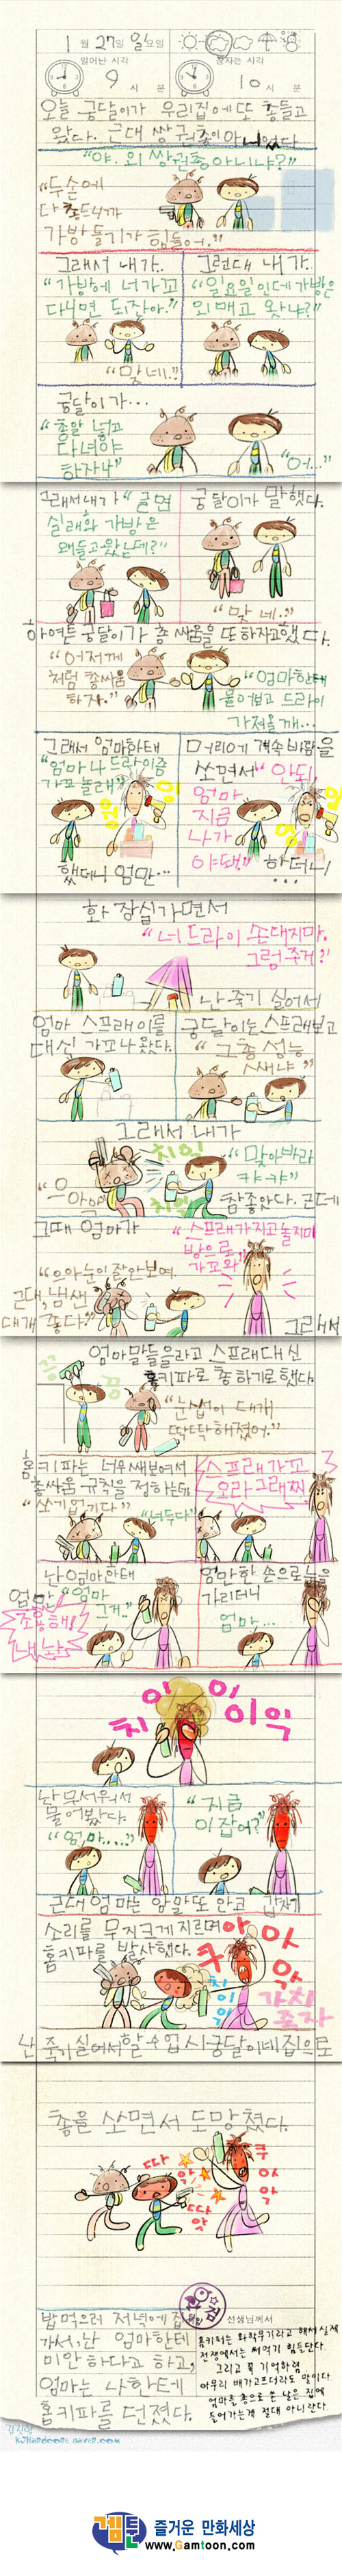 1 월 27일 일요일
일어난 시각
잠자는 시각
9 시 분
10 시 분
오늘 궁달이가 우리집에 또 총들고
왔다. 근데 쌍권총이 아니었다
"야. 왜 쌍권총 아니냐?"
"두손에
다 들으니까
가방 들기가 힘들어.."
그래서 내가..
"가방에 너가꼬
다니면 되잖아."
"맞네.."
그런대 내가.
"일요일인데 가방은
왜 매고 왔냐?"
궁달이가...
"총알 넣고
다녀야
하잖냐"
"어..."
그래서 내가 "글면
실래화 가방은
왜들고왔는데?"
궁달이가 말했다.
"맞네.."
암텐트 궁달이가 총싸움을 또 하자고했다.
"어저께
처럼 총싸움
하자."
"엄마한태
물어보고 드라이
가져올깨...
그래서 엄마한태
"엄마 나 드라이좀
가꼬 놀래"
위이잉
했더니 엄만...
머리에 계속 바람을
쏘면서 "안되.
엄마.
지금
나가
야돼"
하더니
...
화장실가면서
"너 드라이 손대지마.
그럼 죽게?"
난 죽기 싫어서
엄마 스프래이를
대신 가꼬나왔다.
궁달이는 스프래보고
"그총 성능
쌔냐"
그래서 내가
치익
"맞아바라
캬캬"
"으
아악
참좋았다. 근데
그때 엄마가
"스프래가지고놀지마
방으로
가꼬와"
"으아눈이잘안보여
근대, 냄샌
대개 좋다."
그래서
엄마말들을라고 스프래대신
홈키파로 총하기로했다.
끙
끙
"눈섭이 대개
딱딱해졌어."
홈키파는 너무쌔보여서
총싸움 규칙을 정하는데
"쏘기없기다"
"너두다"
스프래가꼬
오라그래찌
난 엄마한태
"엄마
그거.."
엄만
조용해!
내놔
엄마한 손으로눈을
가리더니
엄마...
치이이이익
난 무서워서
물어봤다.
"엄마....."
"지금
이잡어?"
근대 엄마는 암말또 안코 갑자기
소리를 무지크게 지르며
홈키파를 발사했다.
쿠아아악
치이익
가치
죽자
난 죽기실어서 할수업시궁달이네집으로
총을 쏘면서 도망쳤다.
따악
따땃
쿠아악
선생님께서
밥먹으러 저녁에 집
가서, 난 엄마한테
미안 하다고 하고,
엄마는 나한테
홈키파를 던졌다.
홈키퍼는 화학무기라고 해서 실제
전쟁에서는 써먹기 힘들단다.
그리고 꼭 기억하렴
아무리 배가고프더라도 말이다.
엄마를 총으로 쏜 날은 집에
들어가는게 절대 아니란다.
겜툰 즐거운 만화세상
www.Gamtoon.com